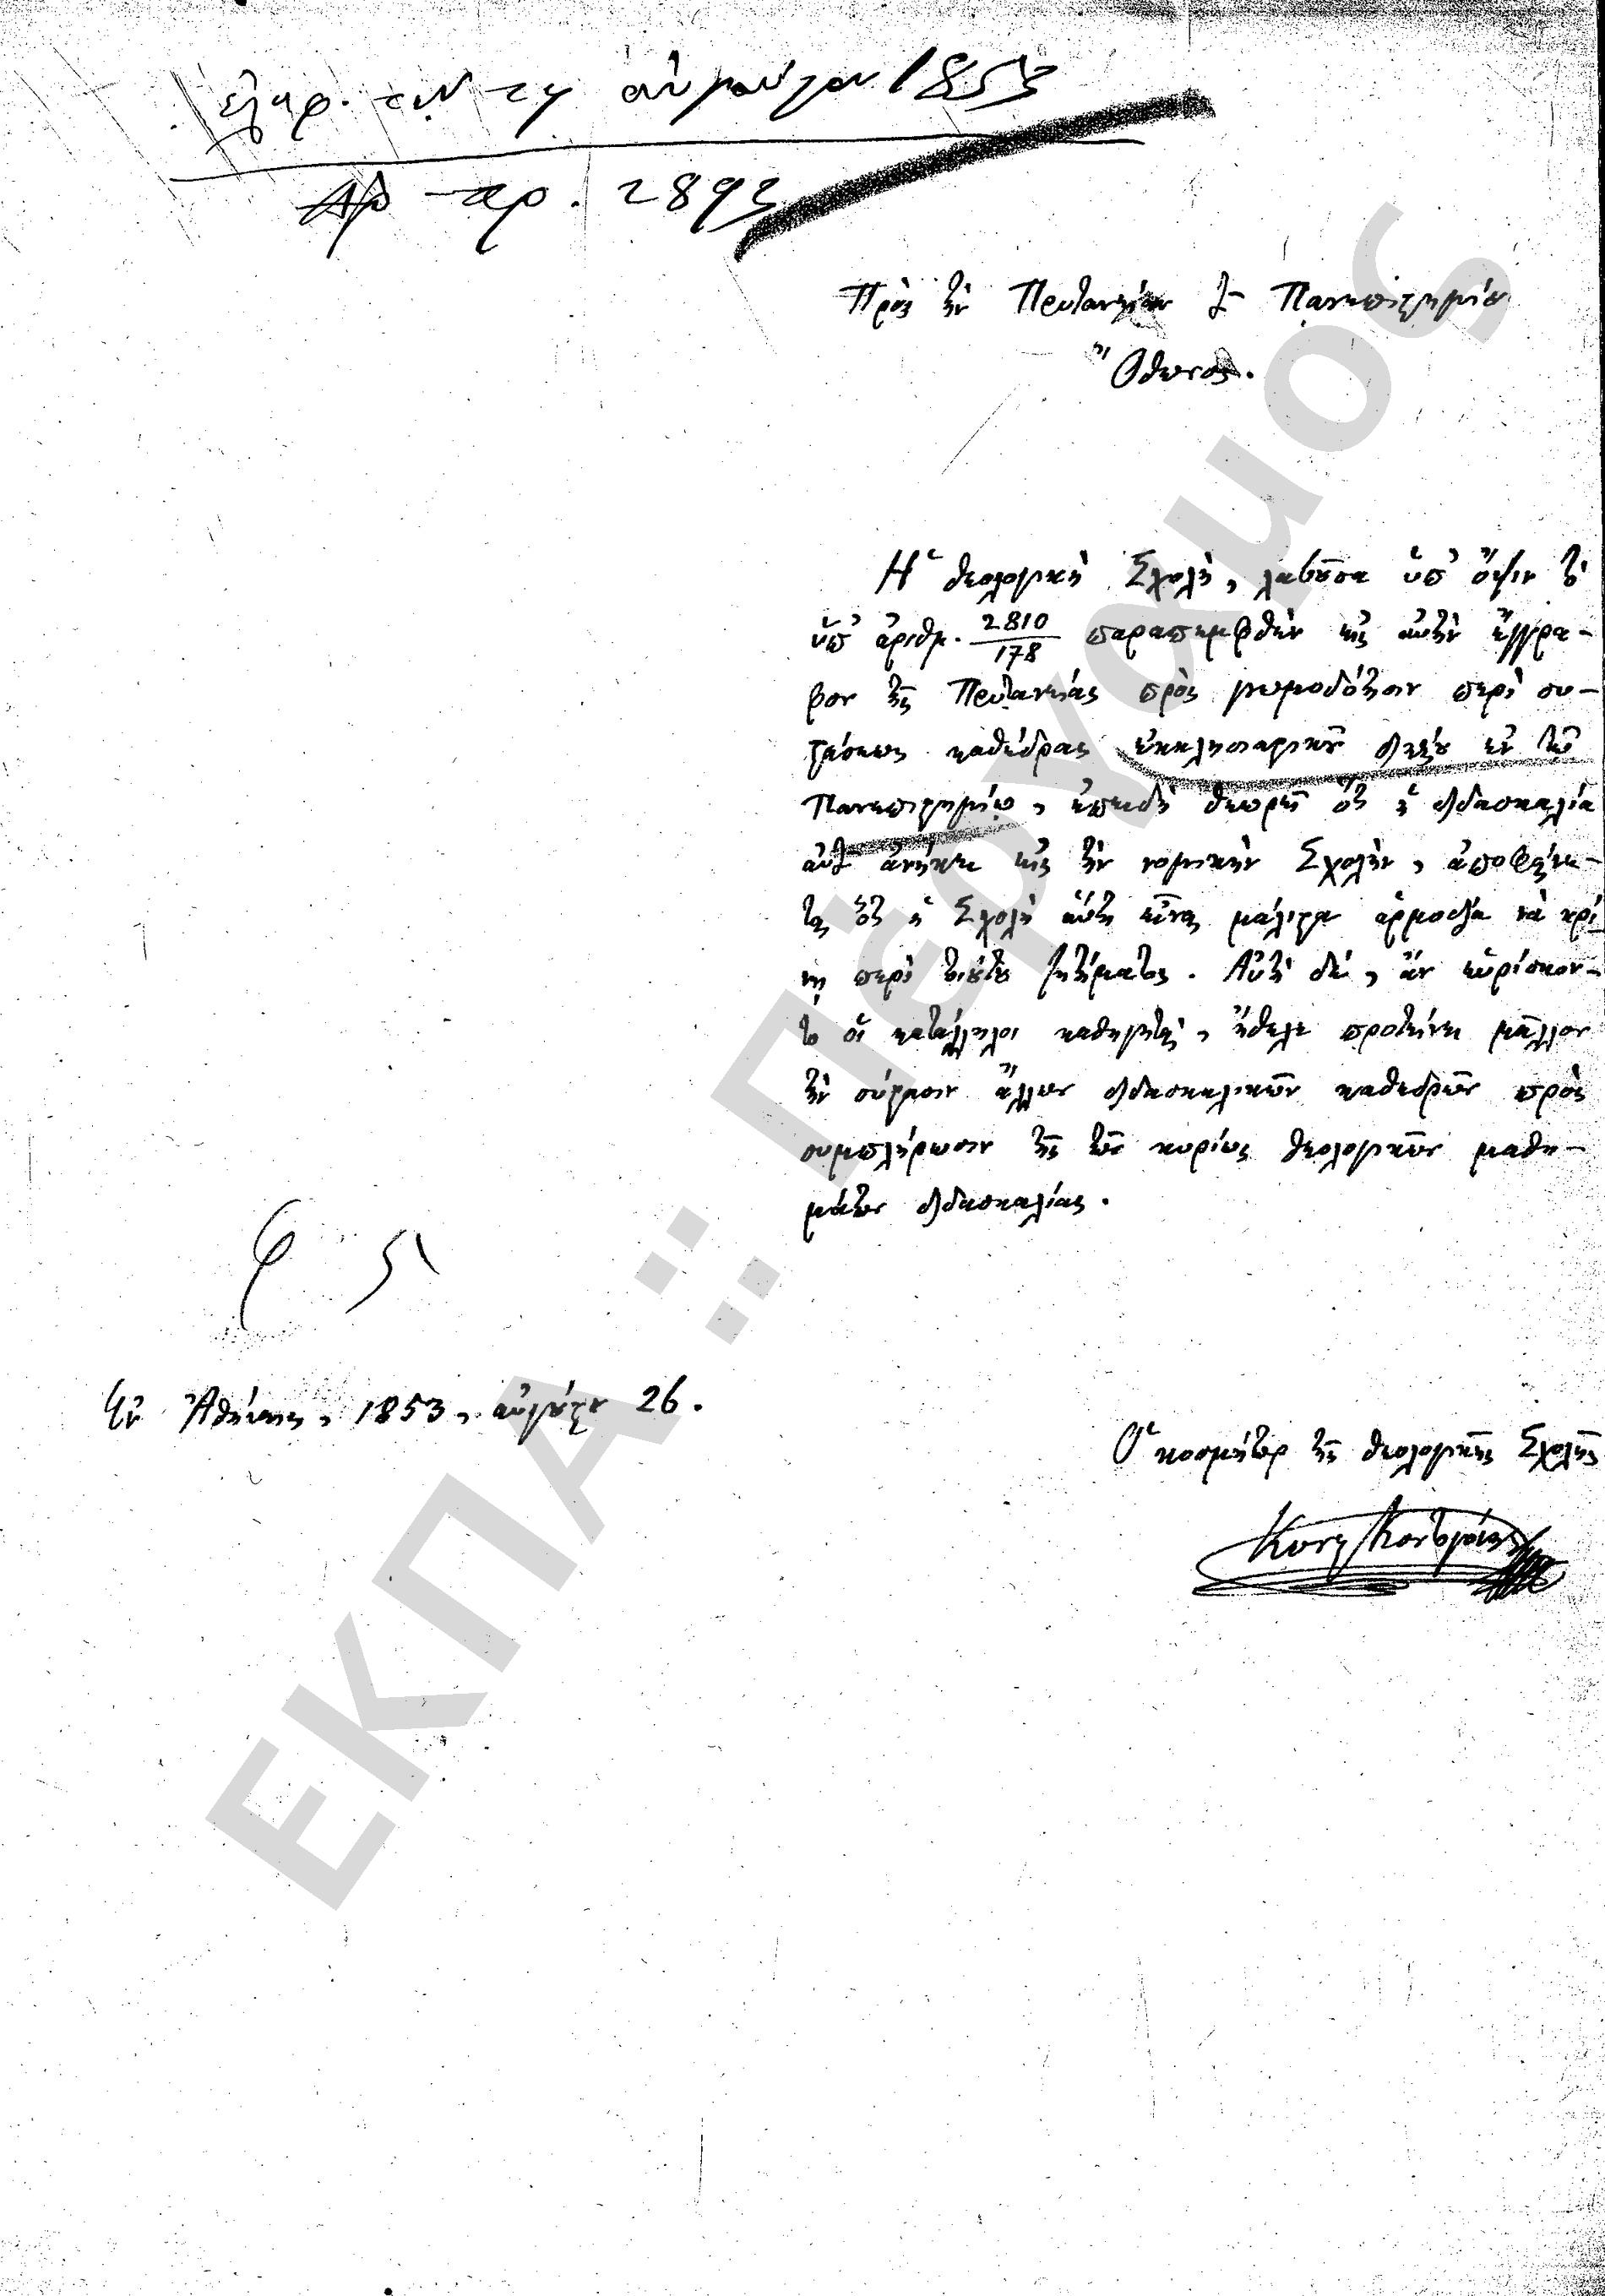 ἐλήφ. τὴν 27 αὐγούστου 1853
Αρ πρ. 2893
Πρὸς τὴν Πρυτανείαν τοῦ Πανεπιστημίου
Ὄθωνος.
Ἡ θεολογικὴ Σχολὴ, λαβοῦσα ὑπ' ὄψιν τὸ
ὑπ' ἀριθμ. 2810/178 παραπεμφθὲν εἰς αὐτὴν ἔγγρα-
φον τῆς Πρυτανείας πρὸς γνωμοδότησιν περὶ συ-
στάσεως καθέδρας ἐκκλησιαστικοῦ δικαίου ἐν τῷ
Πανεπιστημίῳ, ἐπειδὴ θεωρεῖ ὅτι ἡ διδασκαλία
αὐτοῦ ἀνήκει εἰς τὴν νομικὴν Σχολὴν, ἀποφαίνε-
ται ὅτι ἡ Σχολὴ αὕτη εἶναι μάλιστα ἁρμοδία νὰ κρί-
νῃ περὶ τοιούτου ζητήματος. Αὐτὴ δὲ, ἂν εὑρίσκον-
το οἱ κατάλληλοι καθηγηταὶ, ἤθελε προτείνει μᾶλλον
τὴν σύστασιν ἄλλων διδασκαλικῶν καθεδρῶν πρὸς
συμπλήρωσιν τῆς τῶν κυρίως θεολογικῶν μαθη-
μάτων διδασκαλίας.
Ἐν Ἀθήναις, 1853, αὐγούστου 26.
Ὁ κοσμήτωρ τῆς θεολογικῆς Σχολῆς
Κωνστ Κοντογόνης
ΕΚΠΑ :: Πέργαμος